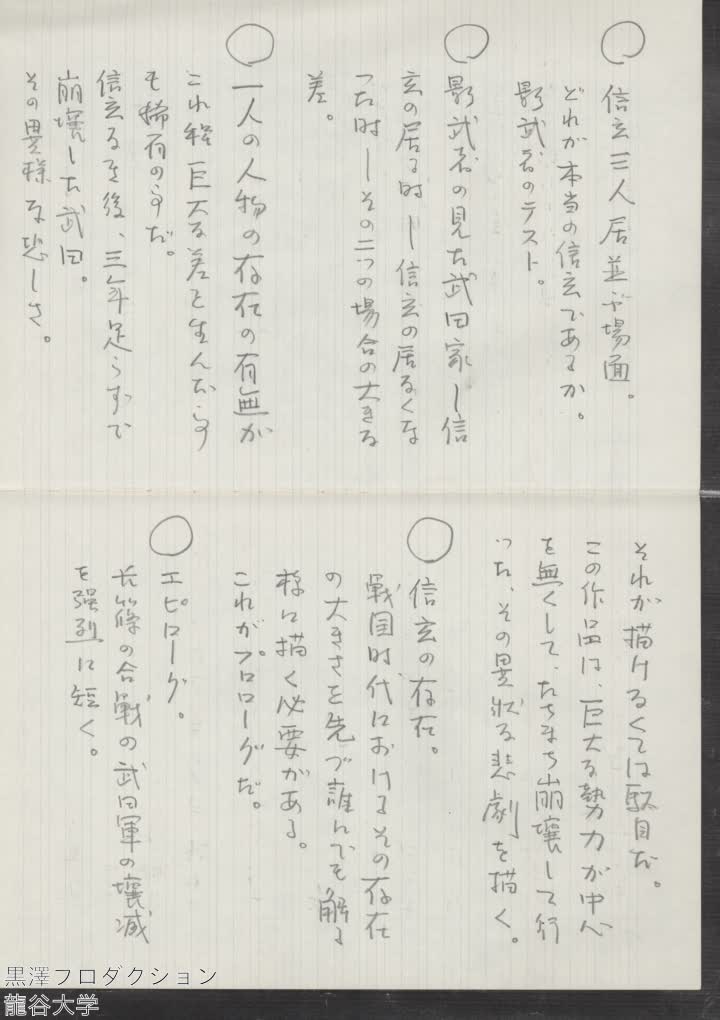 ○ 信玄三人居並ぶ場面。
どれが本当の信玄であるか。
影武者のテスト。
○ 影武者の見た武田家―信
玄の居る時―信玄の居なくな
った時―その二つの場合の大きな
差。
○ 一人の人物の存在の有無が
これ程巨大な差を生んだ
も稀有の事だ。
信玄なき後、三年足らずで
崩壊した武田。
その異様な悲しさ。
それが描けなくては駄目だ。
この作品は、巨大な勢力が中心
を無くして、たちまち崩壊して行
った、その異状な悲劇を描く。
○ 信玄の存在。
戦国時代におけるその存在
の大きさを先づ誰にでも解る
様に描く必要がある。
これがプロローグだ。
○ エピローグ。
長篠の合戦の武田軍の壊滅
を強烈に短く。
黒澤プロダクション
龍谷大学